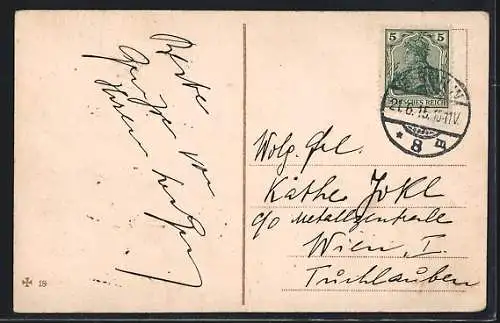 Beste
Grüsse von
Ihrem
5
DEUTSCHES REICH
21.6.15.10-11V.
* 8 B
Wolg. Frl.
Käthe Jokl
c/o Metallzentrale
Wien, I
Tuchlauben
18